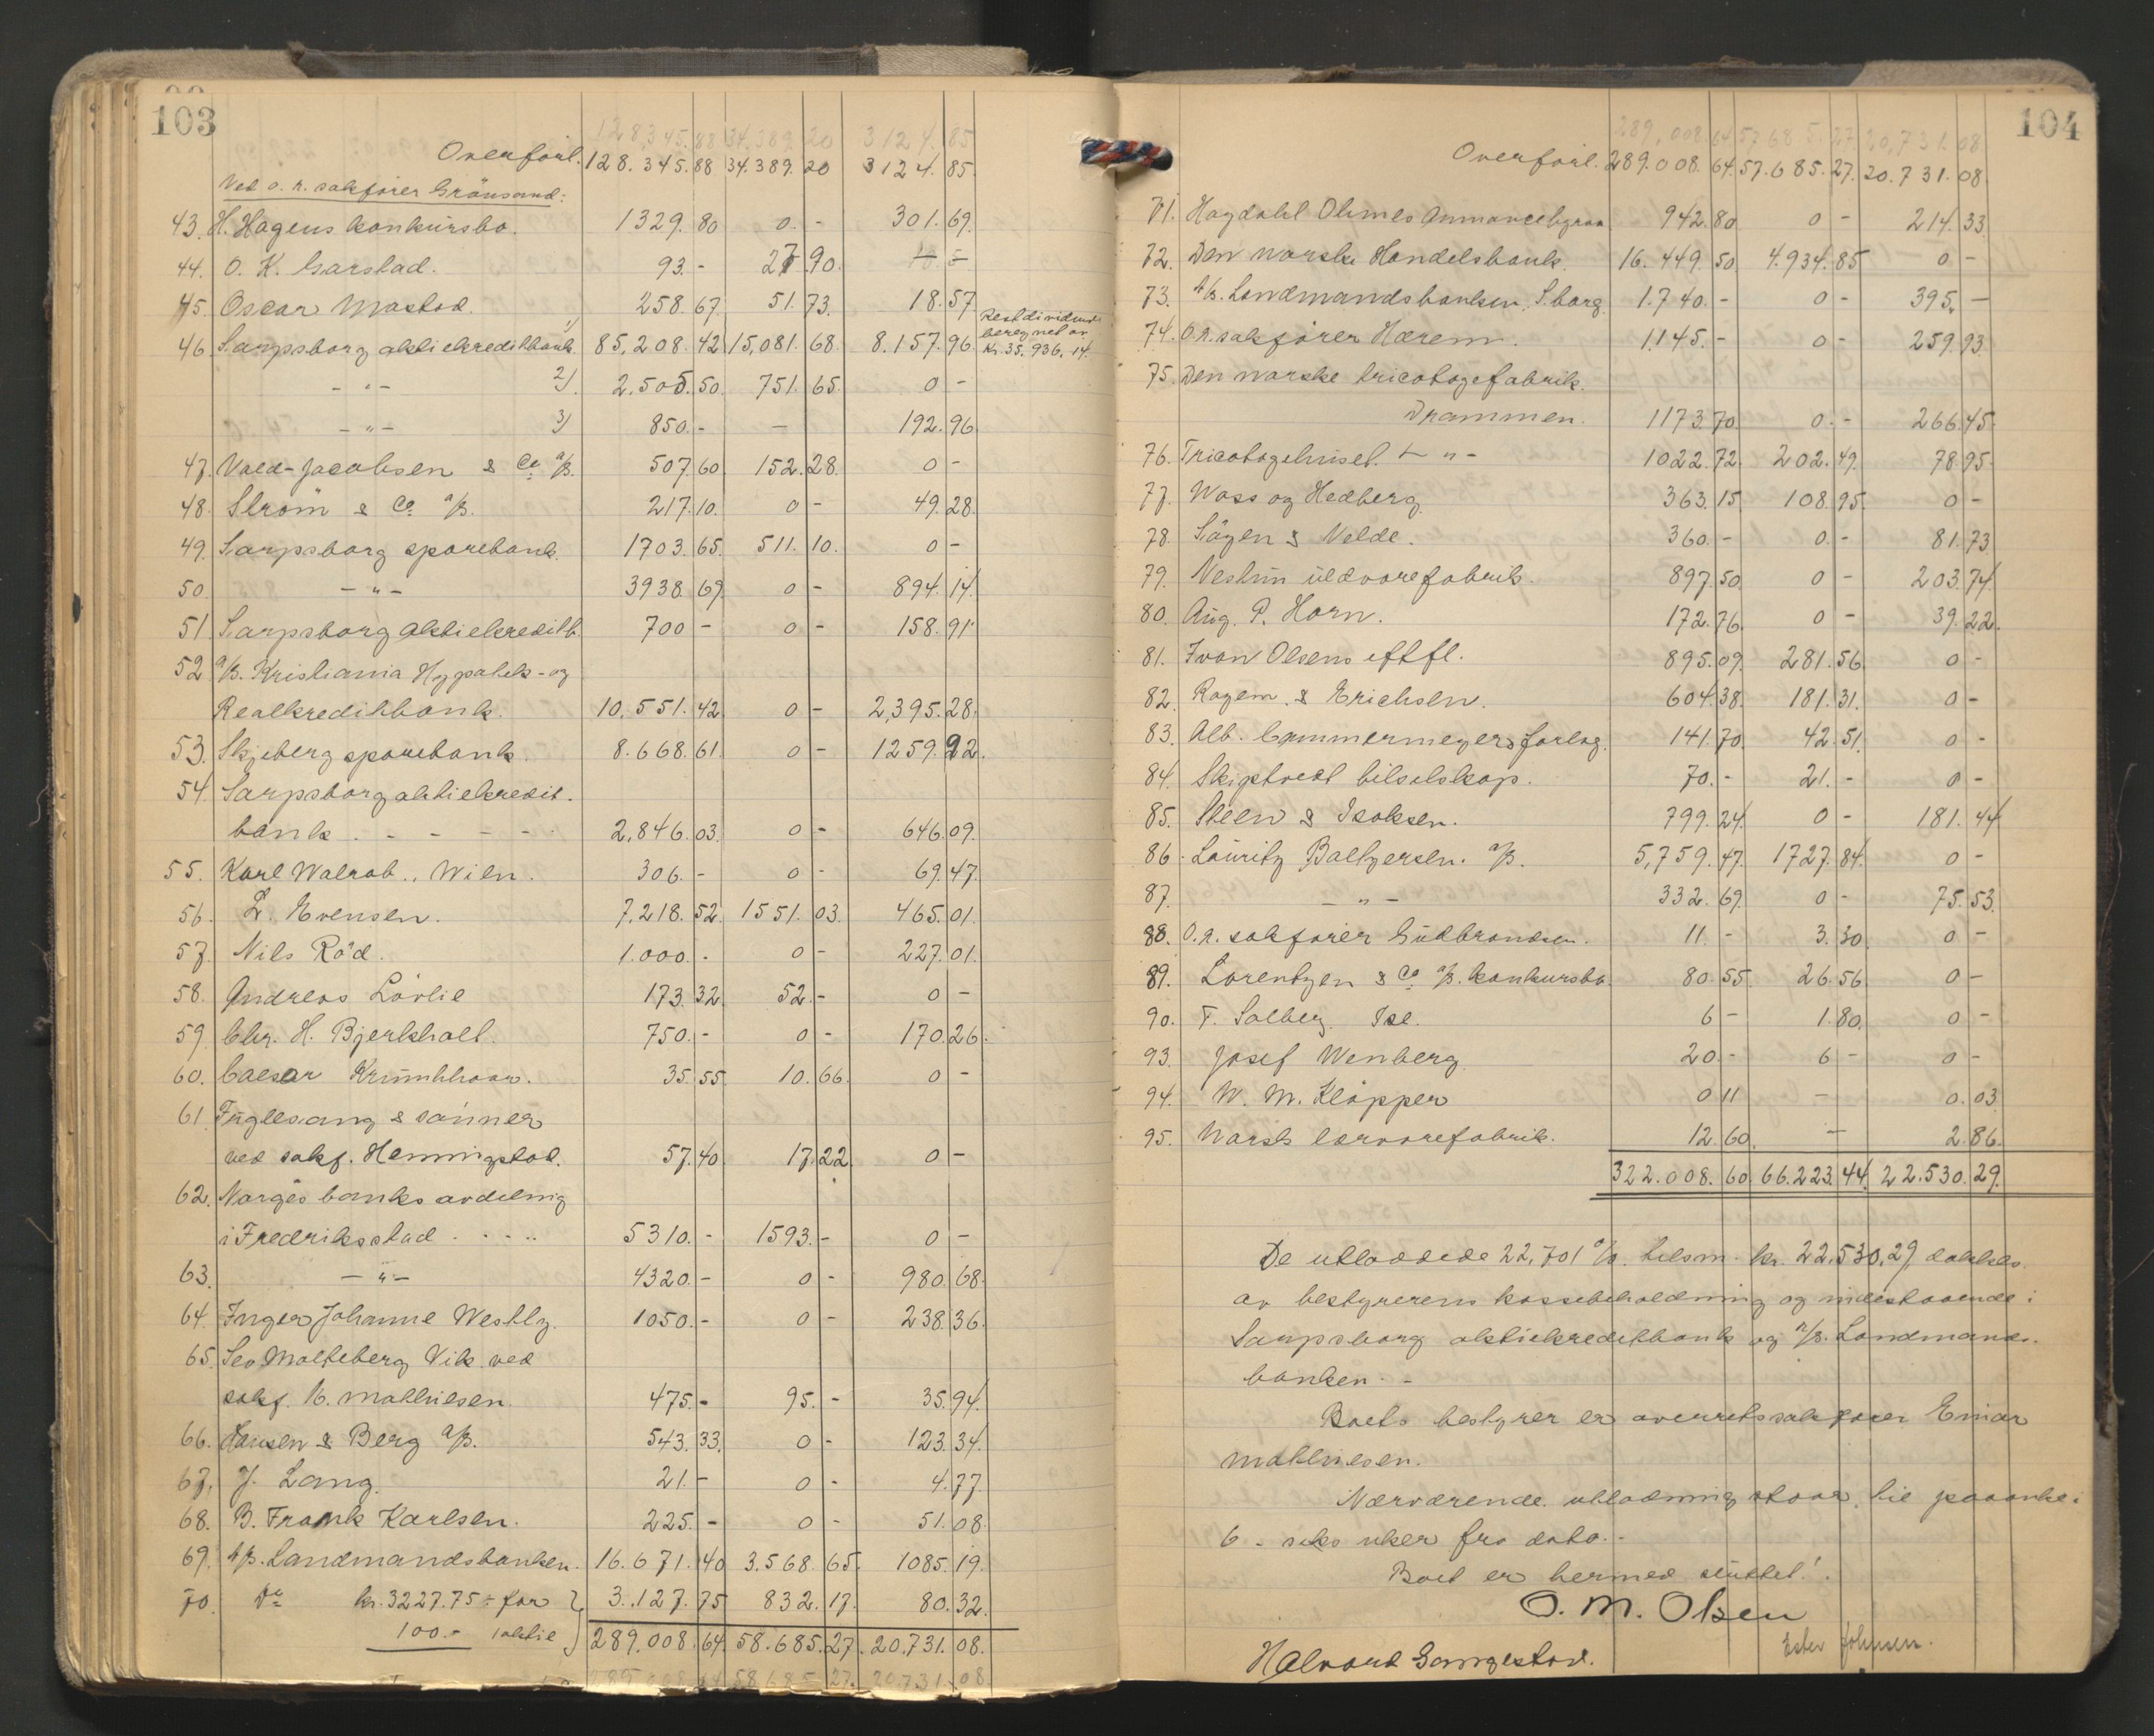 103
128,345.88 34.389.20 3124.85
Overført. 128.345.88 34.389.20 3124.85
Ved o. r. sakfører Grönsand:
43. H. Hagens konkursbo. 1329.80 0.- 301.69.
44. O. K. Garstad. 93.- 27.90. - -
45. Oscar Mastad. 258.67. 51.73. 18.57.
46. Sarpsborg aktiekreditbank. 1) 85,208.42 15,081.68. 8.157.96. Restdividende beregnet av Kr. 35.936.14.
- " - 2) 2.505.50. 751.65. 0 -
- " - 3) 850.- - 192.96
47. Vald-Jacobsen & Co. A/S. 507.60. 152.28. 0 -
48. Ström & Co A/S. 217.10. 0 - 49.28.
49. Sarpsborg sparebank. 1703.65. 511.10. 0 -
50. - " - 3938.69. 0 - 894.14.
51. Sarpsborg Aktiekreditb. 700 - 0 - 158.91.
52 A/S. Kristiania Hypotek- og
Realkreditbank. 10.551.42. 0 - 2,395.28.
53. Skjeberg sparebank. 8.668.61. 0 - 1259.92.
54. Sarpsborg aktiekredit-
bank. - - - - 2.846.03. 0 - 646.09.
55. Karl Walrab., Wien. 306.- 0 - 69.47.
56. L. Evensen. 7.218.52. 1551.03. 465.01.
57. Nils Röd. 1.000.- 0 - 227.01.
58. Andreas Lövlie 173.32. 52.- 0 -
59. Chr. H. Bjerkholt. 750.- 0 - 170.26.
60. Caesar Krümhhaar. 35.55. 10.66. 0 -
61. Fuglesang & sönner
ved sakf. Henningstad. 57.40. 17.22. 0 -
62. Norges banks avdeling
i Fredriksstad . . . . . 5310.- 1593.- 0 -
63. - " - 4320.- 0 - 980.68.
64. Inger Johanne Westby. 1050.- 0 - 238.36.
65. Leo Molteberg Vik ved
sakf. E. Mathiesen. 475.- 95.- 35.94.
66. Hansen & Berg A/S. 543.33. 0 - 123.34.
67. J. Lang. 21.- 0 - 4.77.
68. B. Frank Karlsen. 225.- 0 - 51.08.
69. A/S. Landmandsbanken. 16.671.40 3.568.65. 1085.19.
70. Do kr. 3227.75 ÷ for } 3.127.75 832.17. 80.32.
100.- 1 aktie } 289.008.64. 58.685.27. 20.731.08.
289.008.64 58.685.27. 20.731.08.
104
289,008.64 57.685.27 20,731.08
Overført. 289.008.64. 57.685.27. 20.731.08.
71. Hagdahl Ohmes Annoncebyraa 942.80. 0 - 214.33.
72. Den norske Handelsbank. 16.449.50. 4.934.85 0 -
73. A/S. Landmandsbanken, S.borg. 1.740.- 0 - 395.-
74. O.r.sakfører Hærem. 1145.- 0 - 259.93.
75. Den norske tricotagefabrik.
Drammen. 1173.70. 0.- 266.45.
76. Tricotagehuset. - " - 1022.72. 202.49. 78.95.
77. Wass og Hedberg. 363.15. 108.95. 0 -
78. Löyen & Velde. 360.- 0.- 81.73
79. Nestun uldvarefabrik. 897.50. 0 - 203.74.
80. Aug. P. Horn. 172.76. 0 - 39.22.
81. Ivan Olsens eftfl. 895.09. 281.56. 0 -
82. Ragem. & Erichsen. 604.38. 181.31. 0 -
83. Alb. Cammermeyers forlag. 141.70. 42.51. 0 -
84. Skiptvedt bilselskap. 70.- 21.- 0 -
85. Steen & Isaksen. 799.24. 0 - 181.44
86. Lauritz Baltzersen. A/S. 5,759.47. 1727.84. 0 -
87. - " - 332.69. 0 - 75.53.
88. O.r. sakfører Gudbrandsen. 11.- 3.30. 0 -
89. Lorentzen & Co A/S. konkursbo. 80.55. 26.56. 0 -
90. T. Solberg. Ise. 6 - 1.80. 0 -
93. Josef Wenberg. 20.- 6 - 0 -
94. W. M. Klöpper 0 11 - 0.03
95. Norsk lærvarefabrik. 12.60. - 2.86.
322.008.60. 66.223.44. 22.530.29.
De utloddede 22,701 % tilsm. kr. 22.530,29, dækkes
av bestyrerens kassebeholdning og indestaaende i
Sarpsborg aktiekreditbank og A/S. Landmands-
banken. -
Boets bestyrer er overretssakfører Einar
Mathiesen.
Nærværende utlodning staar til paaanke i
6 - seks uker fra dato. -
Boet er hermed sluttet!
O. M. Olsen
Ester Johnsen.
Halvard Gangestad.